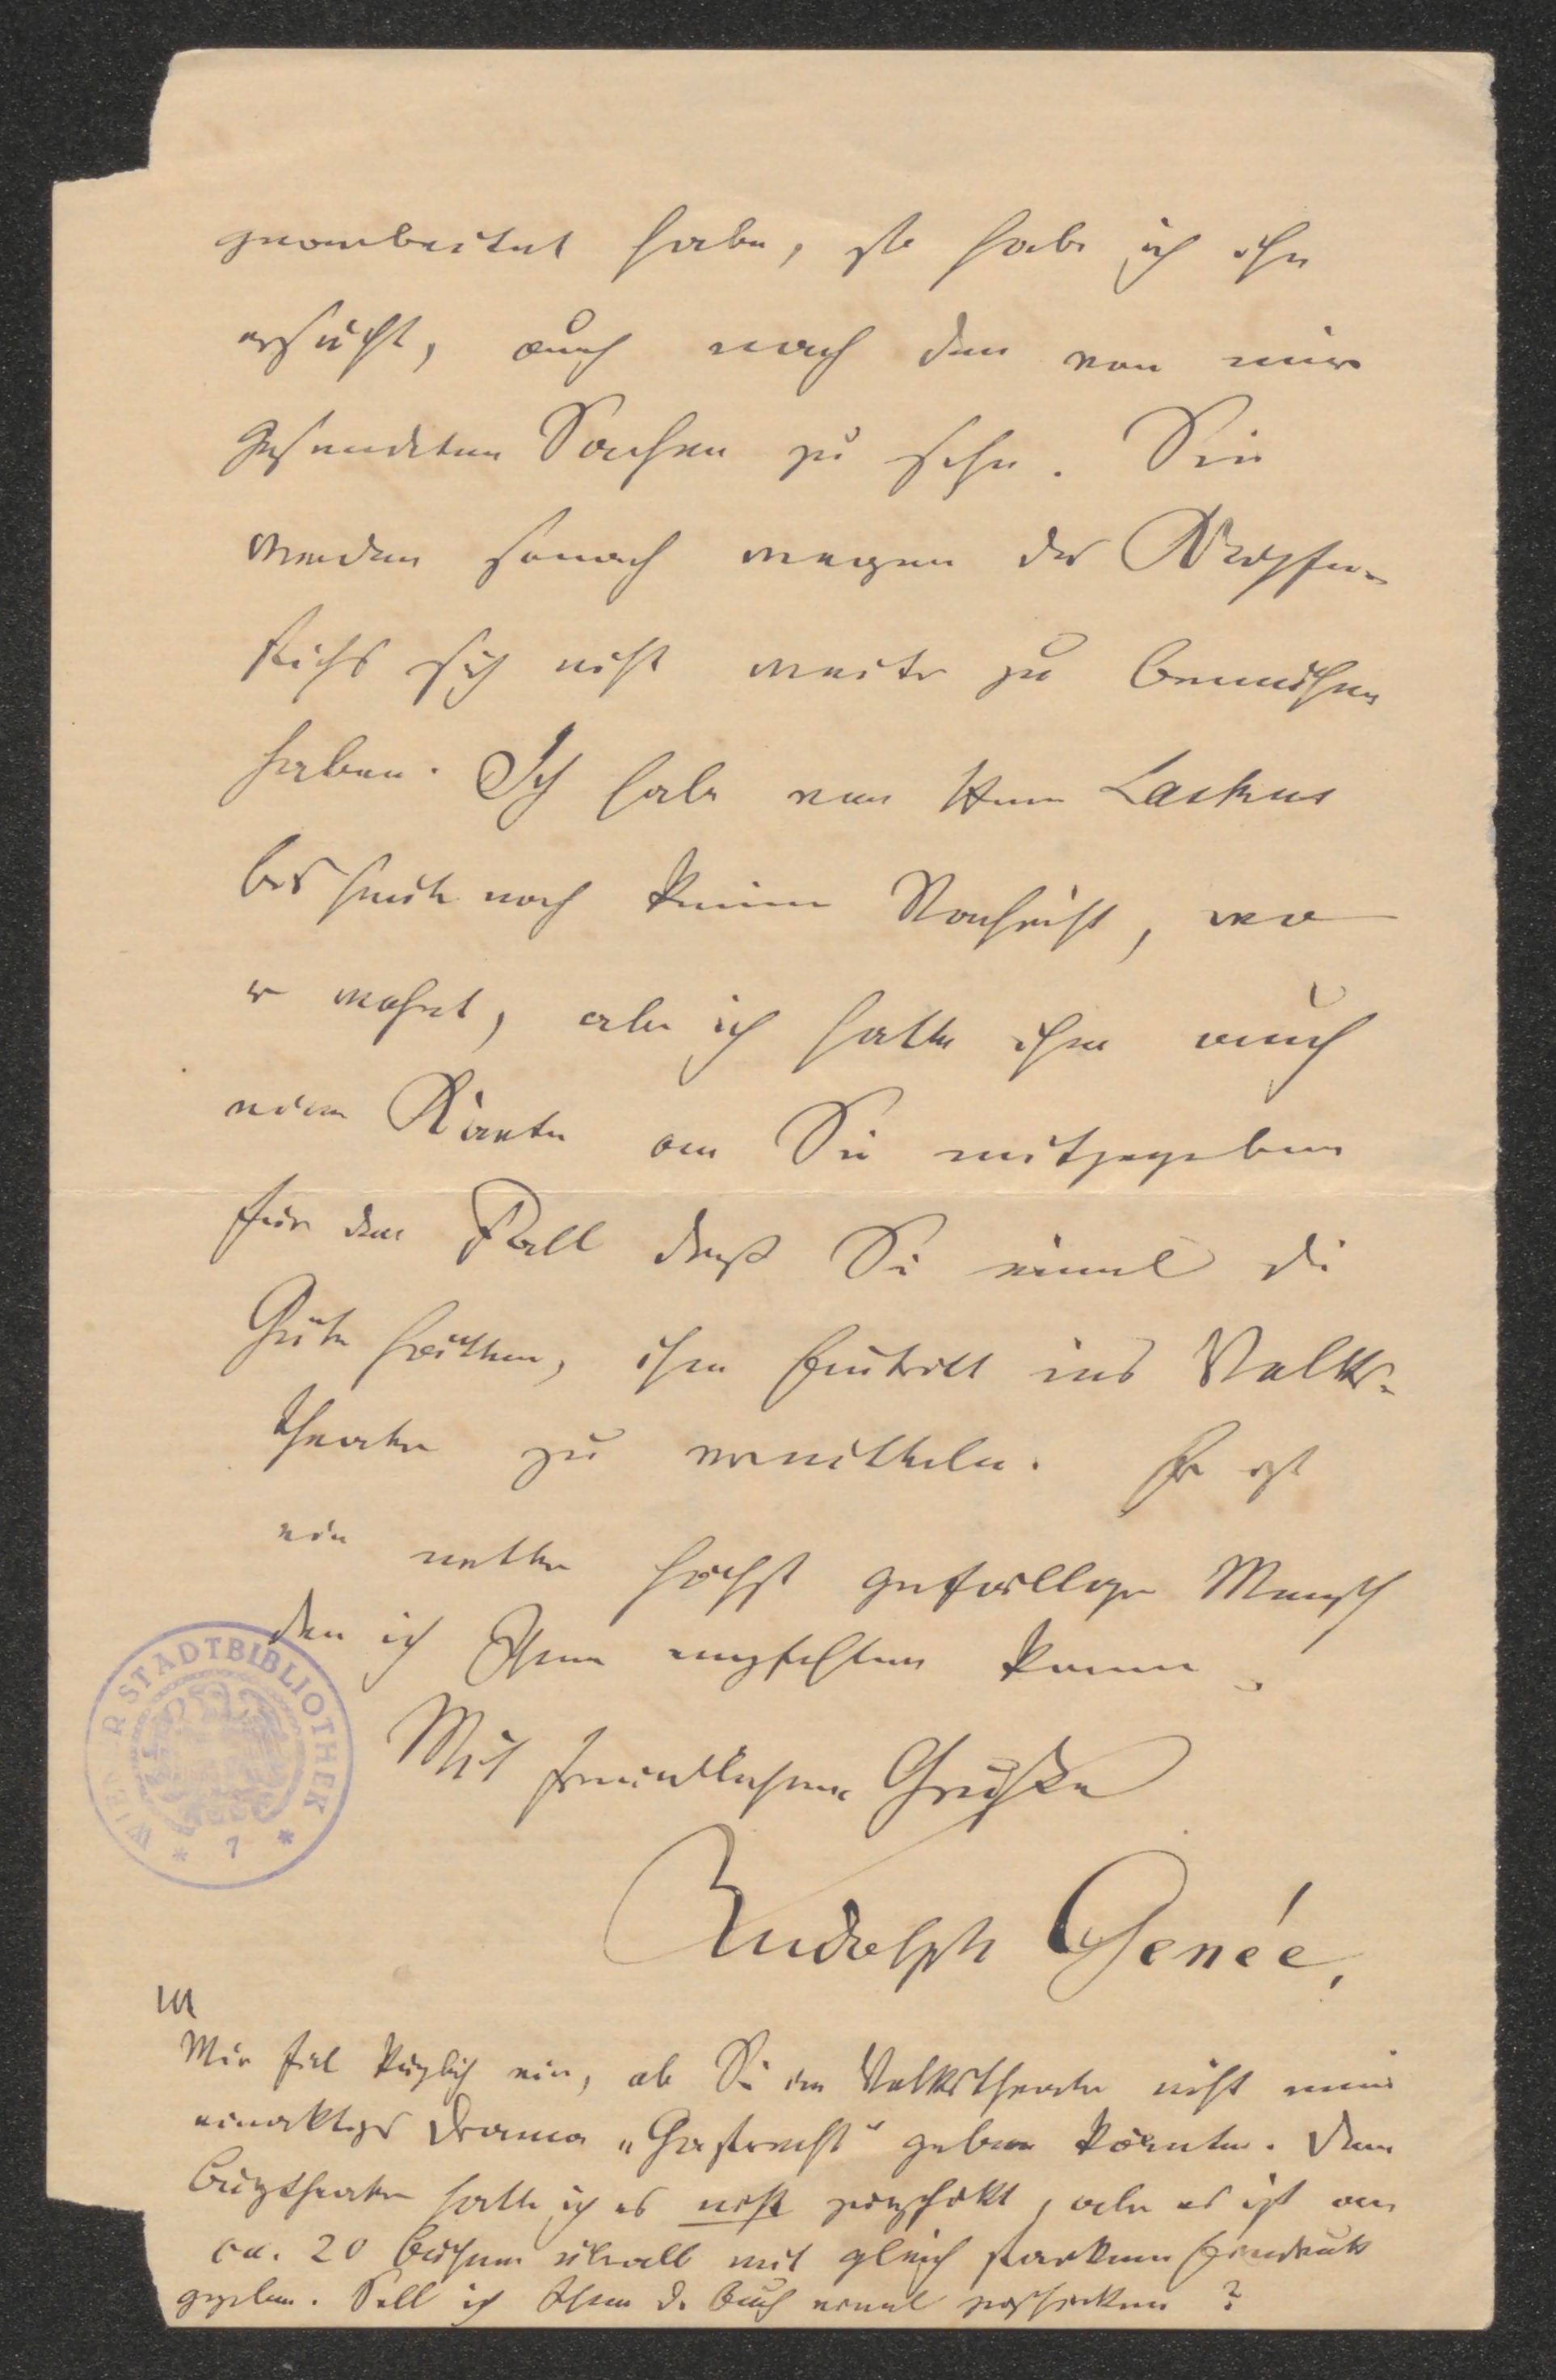 gearbeitet habe, so habe ich ihn
ersucht, auch nach den von mir
gesendeten Sachen zu sehn. Sie
werden sonach wegen des Kupfer-
stichs sich nicht weiter zu bemühen
haben. Ich habe von Herrn Laskus
bis heute noch keine Nachricht, wo
er wohnt, aber ich hatte ihm auch
eine Karte an Sie mitgegeben
für den Fall daß Sie einmal die
Güte hätten, ihm Eintritt ins Volks-
theater zu vermitteln. Er ist
ein netter höchst gefälliger Mensch
den ich Ihnen empfehlen kann.
Mit freundlichem Gruße
Rudolph Genée.
Mir fiel kürzlich ein, ob Sie im Volkstheater nicht mein
einaktiges Drama „Gastrecht" geben könnten. Dem
Burgtheater hatte ich es nicht zugeschickt, aber es ist an
ca. 20 Bühnen überall mit gleich starkem Eindruck
gegeben. Soll ich Ihnen das Buch einmal zuschicken?
WIENER STADTBIBLIOTHEK
* 7 *